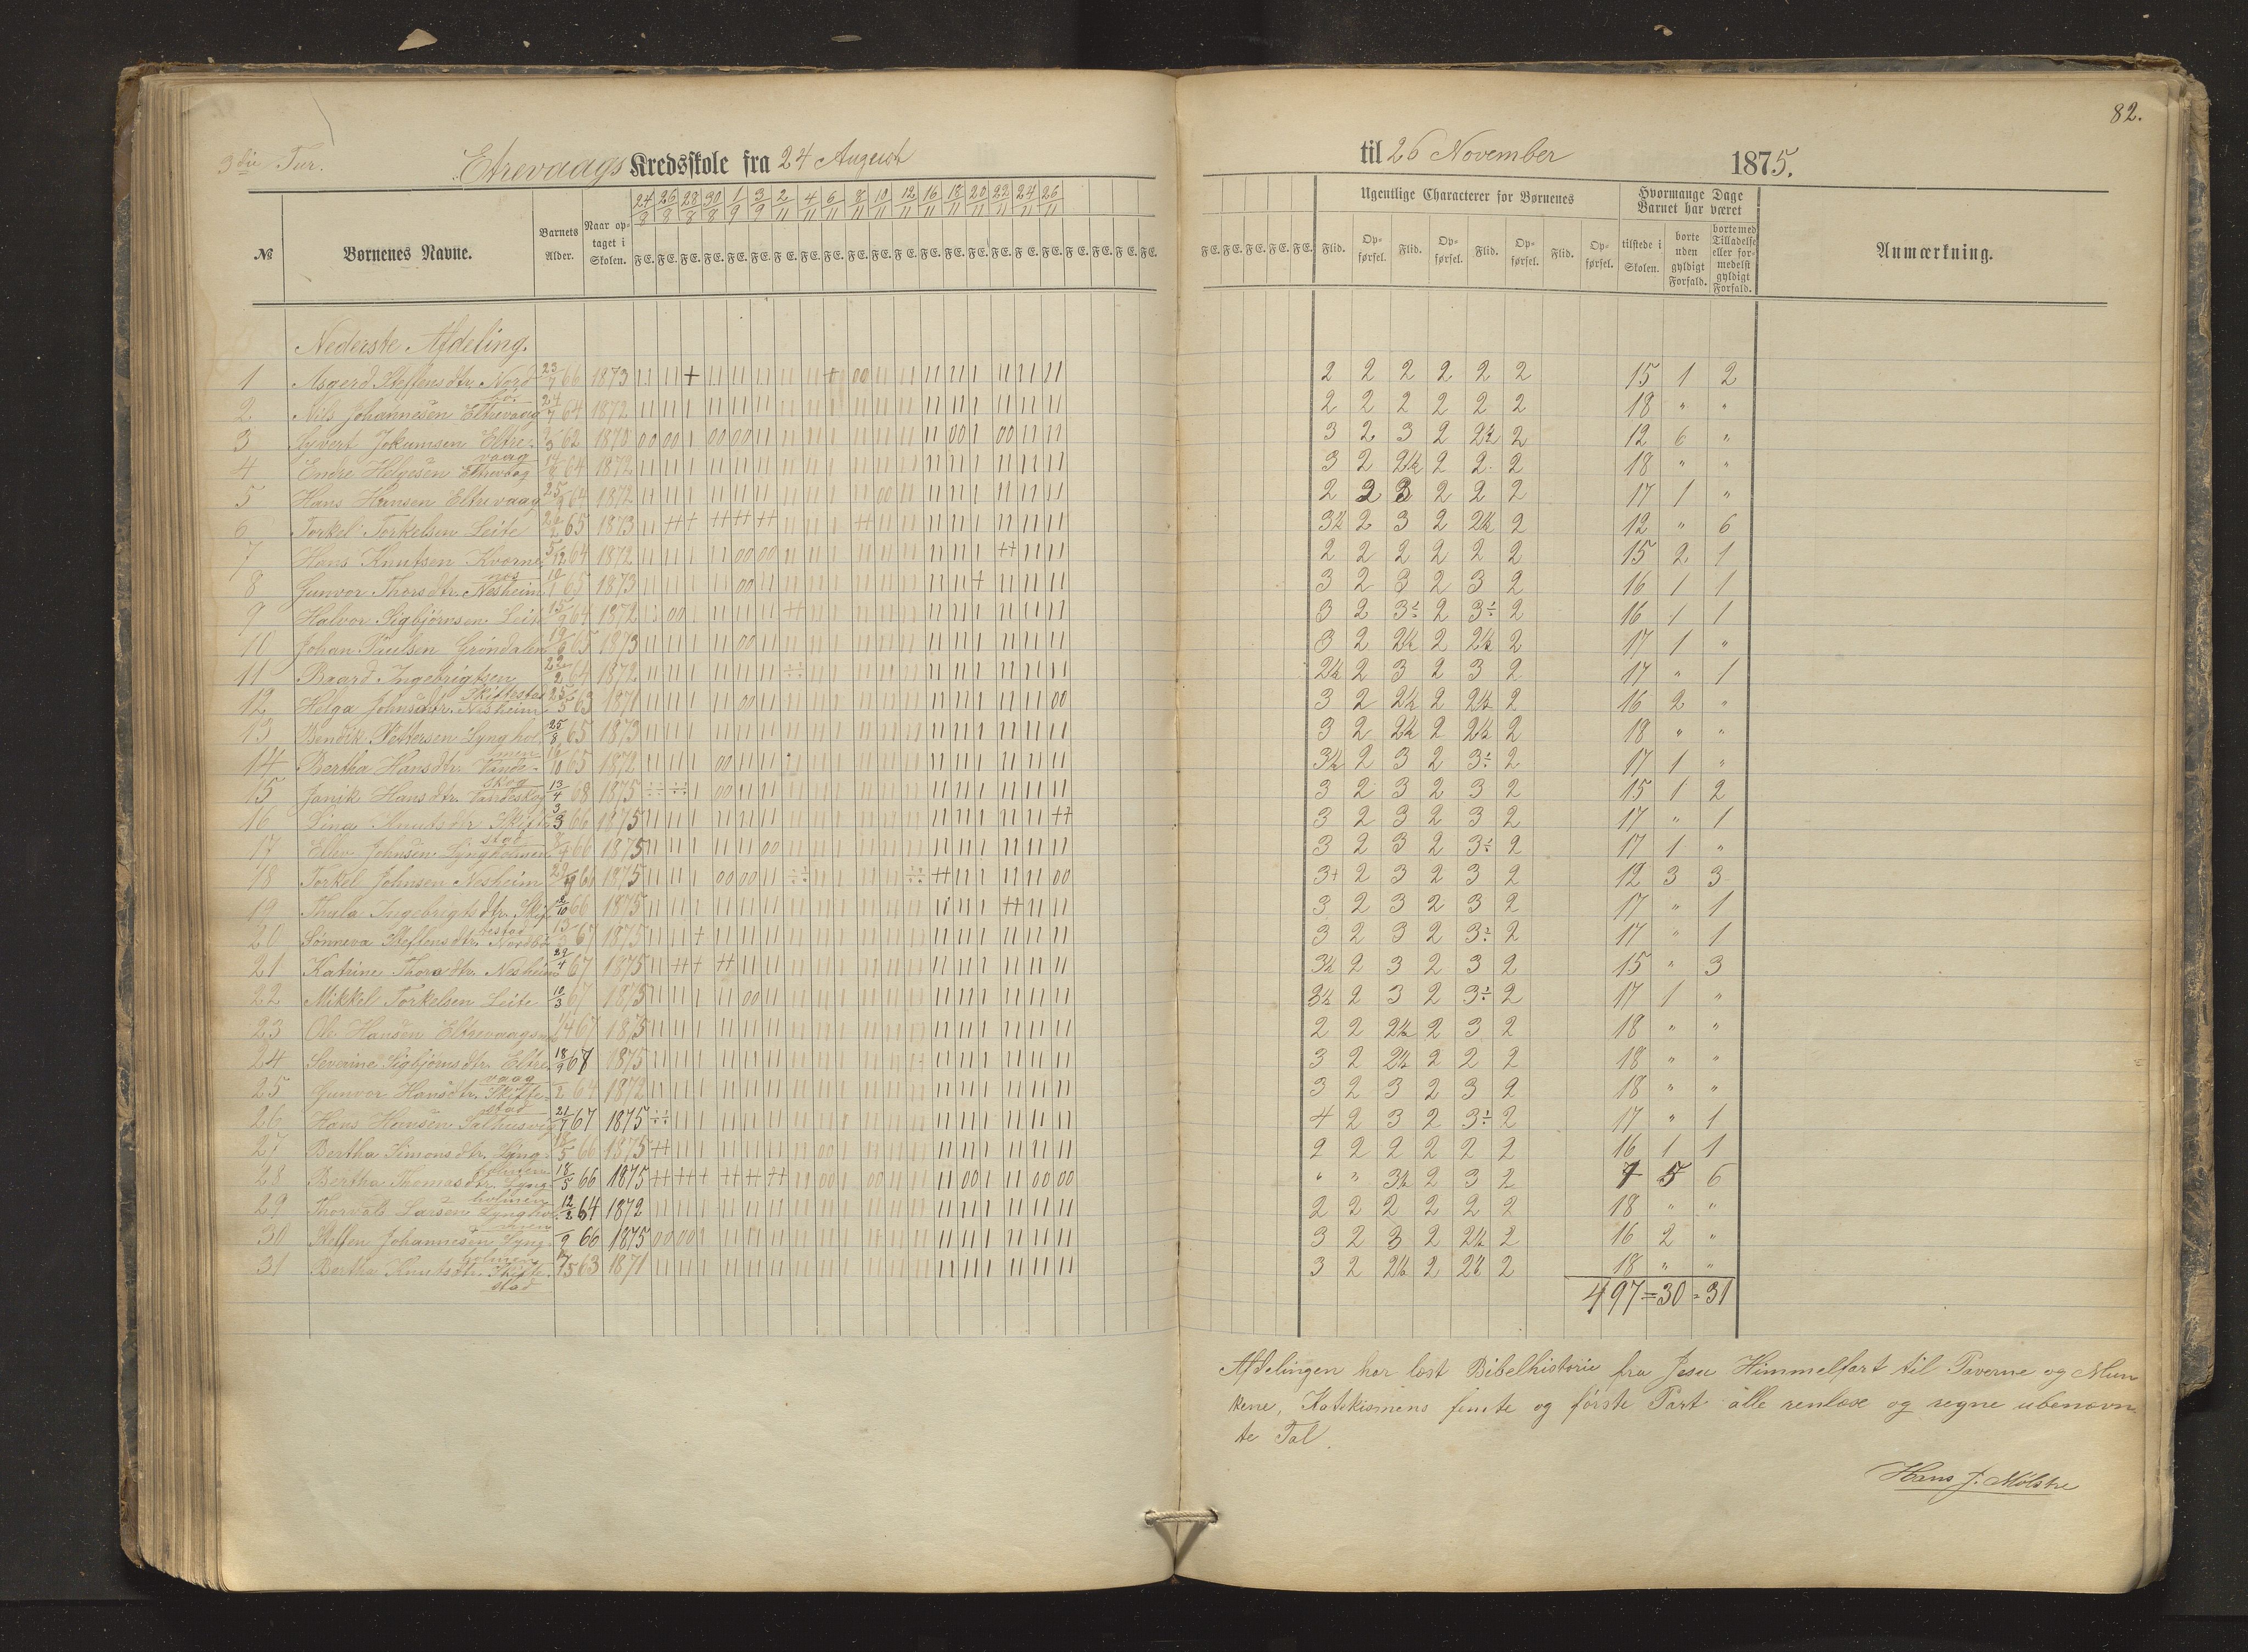 82.
3die Tur.
Etrevaags Kredsskole fra 24 August til 26 November 1875.
№ Børnenes Navne. Barnets Alder. Naar optaget i Skolen. 24/8 26/8 28/8 30/8 1/9 3/9 2/11 4/11 6/11 8/11 10/11 12/11 16/11 18/11 20/11 22/11 24/11 26/11
Ugentlige Characterer for Børnenes Flid. Opførsel. Flid. Opførsel. Flid. Opførsel. Flid. Opførsel.
Hvormange Dage Barnet har været tilstede i Skolen. borte uden gyldigt Forfald. borte med Tilladelse eller formedelst gyldigt Forfald.
Anmærkning.
Nederste Afdeling.
1 Asgerd Steffensdtr. Nordbö 23/7 66 1873 2 2 2 2 2 2 15 1 2
2 Nils Johannesen Eltrevaag 24/7 64 1872 2 2 2 2 2 2 18 " "
3 Syvert Jokumsen Eltrevaag 62 1873 3 2 3 2 2½ 2 12 6 "
4 Endre Helgesen Eltrevaag 64 1872 3 2 2½ 2 2 2 18 " "
5 Hans Hansen Eltrevaag 64 1872 2 2 3 2 2 2 17 1 "
6 Torkel Torkelsen Leite 65 1873 3½ 2 3 2 2½ 2 12 " 6
7 Hans Knutsen Kvornenes 5/12 64 1872 2 2 2 2 2 2 15 2 1
8 Gunvor Thorsdtr. Nesheim 65 1873 3 2 3 2 3 2 16 1 1
9 Halvor Sigbjörnsen Leite 64 1872 3 2 3÷ 2 3÷ 2 16 1 1
10 Johan Paulsen Gröndalen 65 1873 3 2 2½ 2 2½ 2 17 1 "
11 Baard Ingebrigtsen Skiftestad 22/2 64 1872 2½ 2 3 2 3 2 17 " 1
12 Helga Johnsdtr. Nesheim 25/5 63 1871 3 2 2½ 2 2½ 2 16 2 "
13 Bendik Pettersen Lyngholmen 25/8 65 1873 3 2 2½ 2 2½ 2 18 " "
14 Bertha Hansdtr. Vandeskog 65 1872 3½ 2 3 2 3÷ 2 17 1 "
15 Janik Hansdtr. Vandeskog 13/4 68 1875 3 2 3 2 3 2 15 1 2
16 Lina Knutsdtr. Skiftestad 3/3 66 1875 3 2 3 2 3 2 17 " 1
17 Ellev Johnsen Lyngholmen 66 1875 3 2 3 2 3÷ 2 17 1 "
18 Torkel Johnsen Nesheim 66 1875 3+ 2 3 2 3 2 12 3 3
19 Thala Ingebrigtsdtr. Skiftestad 66 1875 3 2 3 2 3 2 17 " 1
20 Sönneva Steffensdtr. Nordbö 67 1875 3 2 3 2 3÷ 2 17 " 1
21 Katrine Thorsdtr. Nesheim 67 1875 3½ 2 3 2 3 2 15 " 3
22 Mikkel Torkelsen Leite 10/3 67 1875 3½ 2 3 2 3÷ 2 17 1 "
23 Ole Hansen Eltrevaag 67 1875 2 2 2½ 2 3 2 18 " "
24 Severine Sigbjörnsdtr. Eltrevaag 18/9 67 1875 3 2 2½ 2 2 2 18 " "
25 Gunvor Hansdtr. Skiftestad 64 1872 3 2 3 2 3 2 18 " "
26 Hans Hansen Salhusvig 21/7 67 1875 4 2 3 2 3÷ 2 17 " 1
27 Bertha Simonsdtr. Lyngholmen 18/5 66 1875 2 2 2 2 2 2 16 1 1
28 Bertha Thomasdtr. Lyngholmen 18/5 66 1875 " " 3½ 2 3 2 7 5 6
29 Thorvald Larsen Lyngholmen 12/2 64 1872 2 2 2 2 2 2 18 " "
30 Steffen Johannesen Lyngholmen 66 1875 3 2 3 2 2½ 2 16 2 "
31 Bertha Knutsdtr. Skiftestad 63 1871 3 2 2½ 2 2½ 2 18 " "
497 = 30 = 31
Afdelingen har læst Bibelhistorie fra Jesu Himmelfart til Paverne og Mun
kene, Katekismens femte og förste Part alle renlæse og regne ubenævn
te Tal.
Hans J. Mölstre